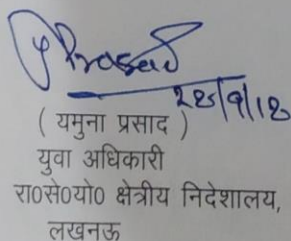 Y Prasad
28/9/18
( यमुना प्रसाद )
युवा अधिकारी
रा0से0यो0 क्षेत्रीय निदेशालय,
लखनऊ